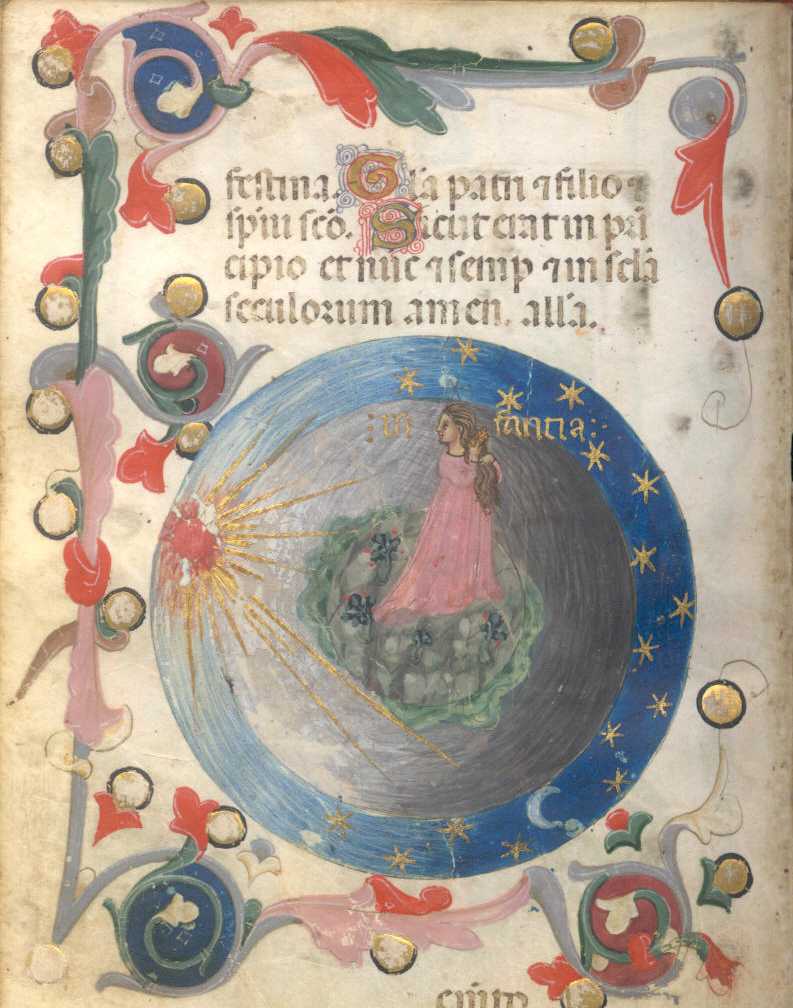 festina. Gl'a patri ⁊ filio ⁊
sp̄iui scō. Sicut erat in pri
cipio et nūc ⁊ semp ⁊ in sclā
seculorum amen. all'a.
: in fantia :